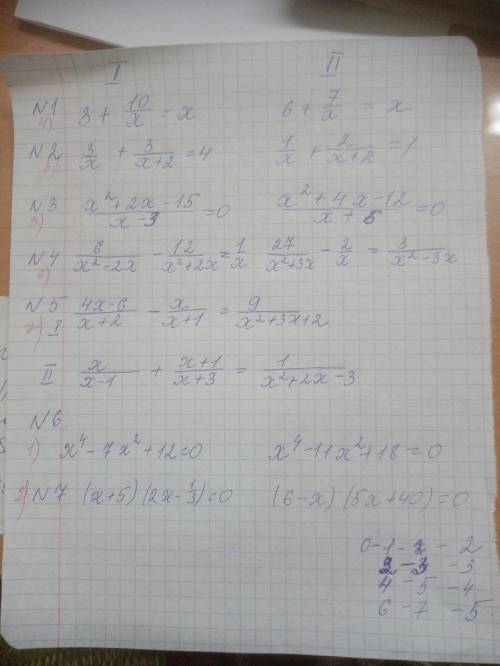 I II
N1 4) 3 + 10/x = x 6 + 7/x = x
N2 5) 3/x + 3/(x+2) = 4 1/x + 2/(x+2) = 1
N3 3) (x²+2x-15)/(x-3) = 0 (x²+4x-12)/(x+6) = 0
N4 6) 6/(x²-2x) - 12/(x²+2x) = 1/x 27/(x²+3x) - 2/x = 3/(x²-3x)
N5 7) I (4x-6)/(x+2) - x/(x+1) = 9/(x²+3x+2)
II x/(x-1) + (x+1)/(x+3) = 1/(x²+2x-3)
N6
1) x⁴-7x²+12=0 x⁴-11x²+18=0
2) N7 (x+5)(2x-1/3)=0 (6-x)(5x+40)=0
0-1- - 2
2-3 -3
4-5 -4
6-7 -5